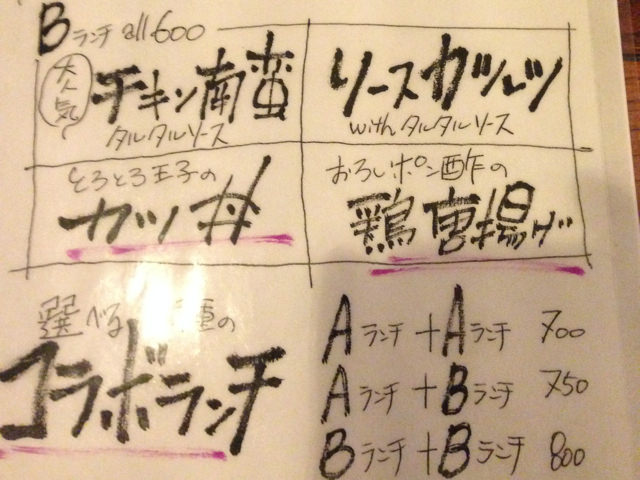 Bランチ all 600
大人気
チキン南蛮
タルタルソース
ソースカツレツ
with タルタルソース
とろとろ玉子の
カツ丼
おろしポン酢の
鶏唐揚げ
選べる 種の
コラボランチ
Aランチ+Aランチ 700
Aランチ+Bランチ 750
Bランチ+Bランチ 800